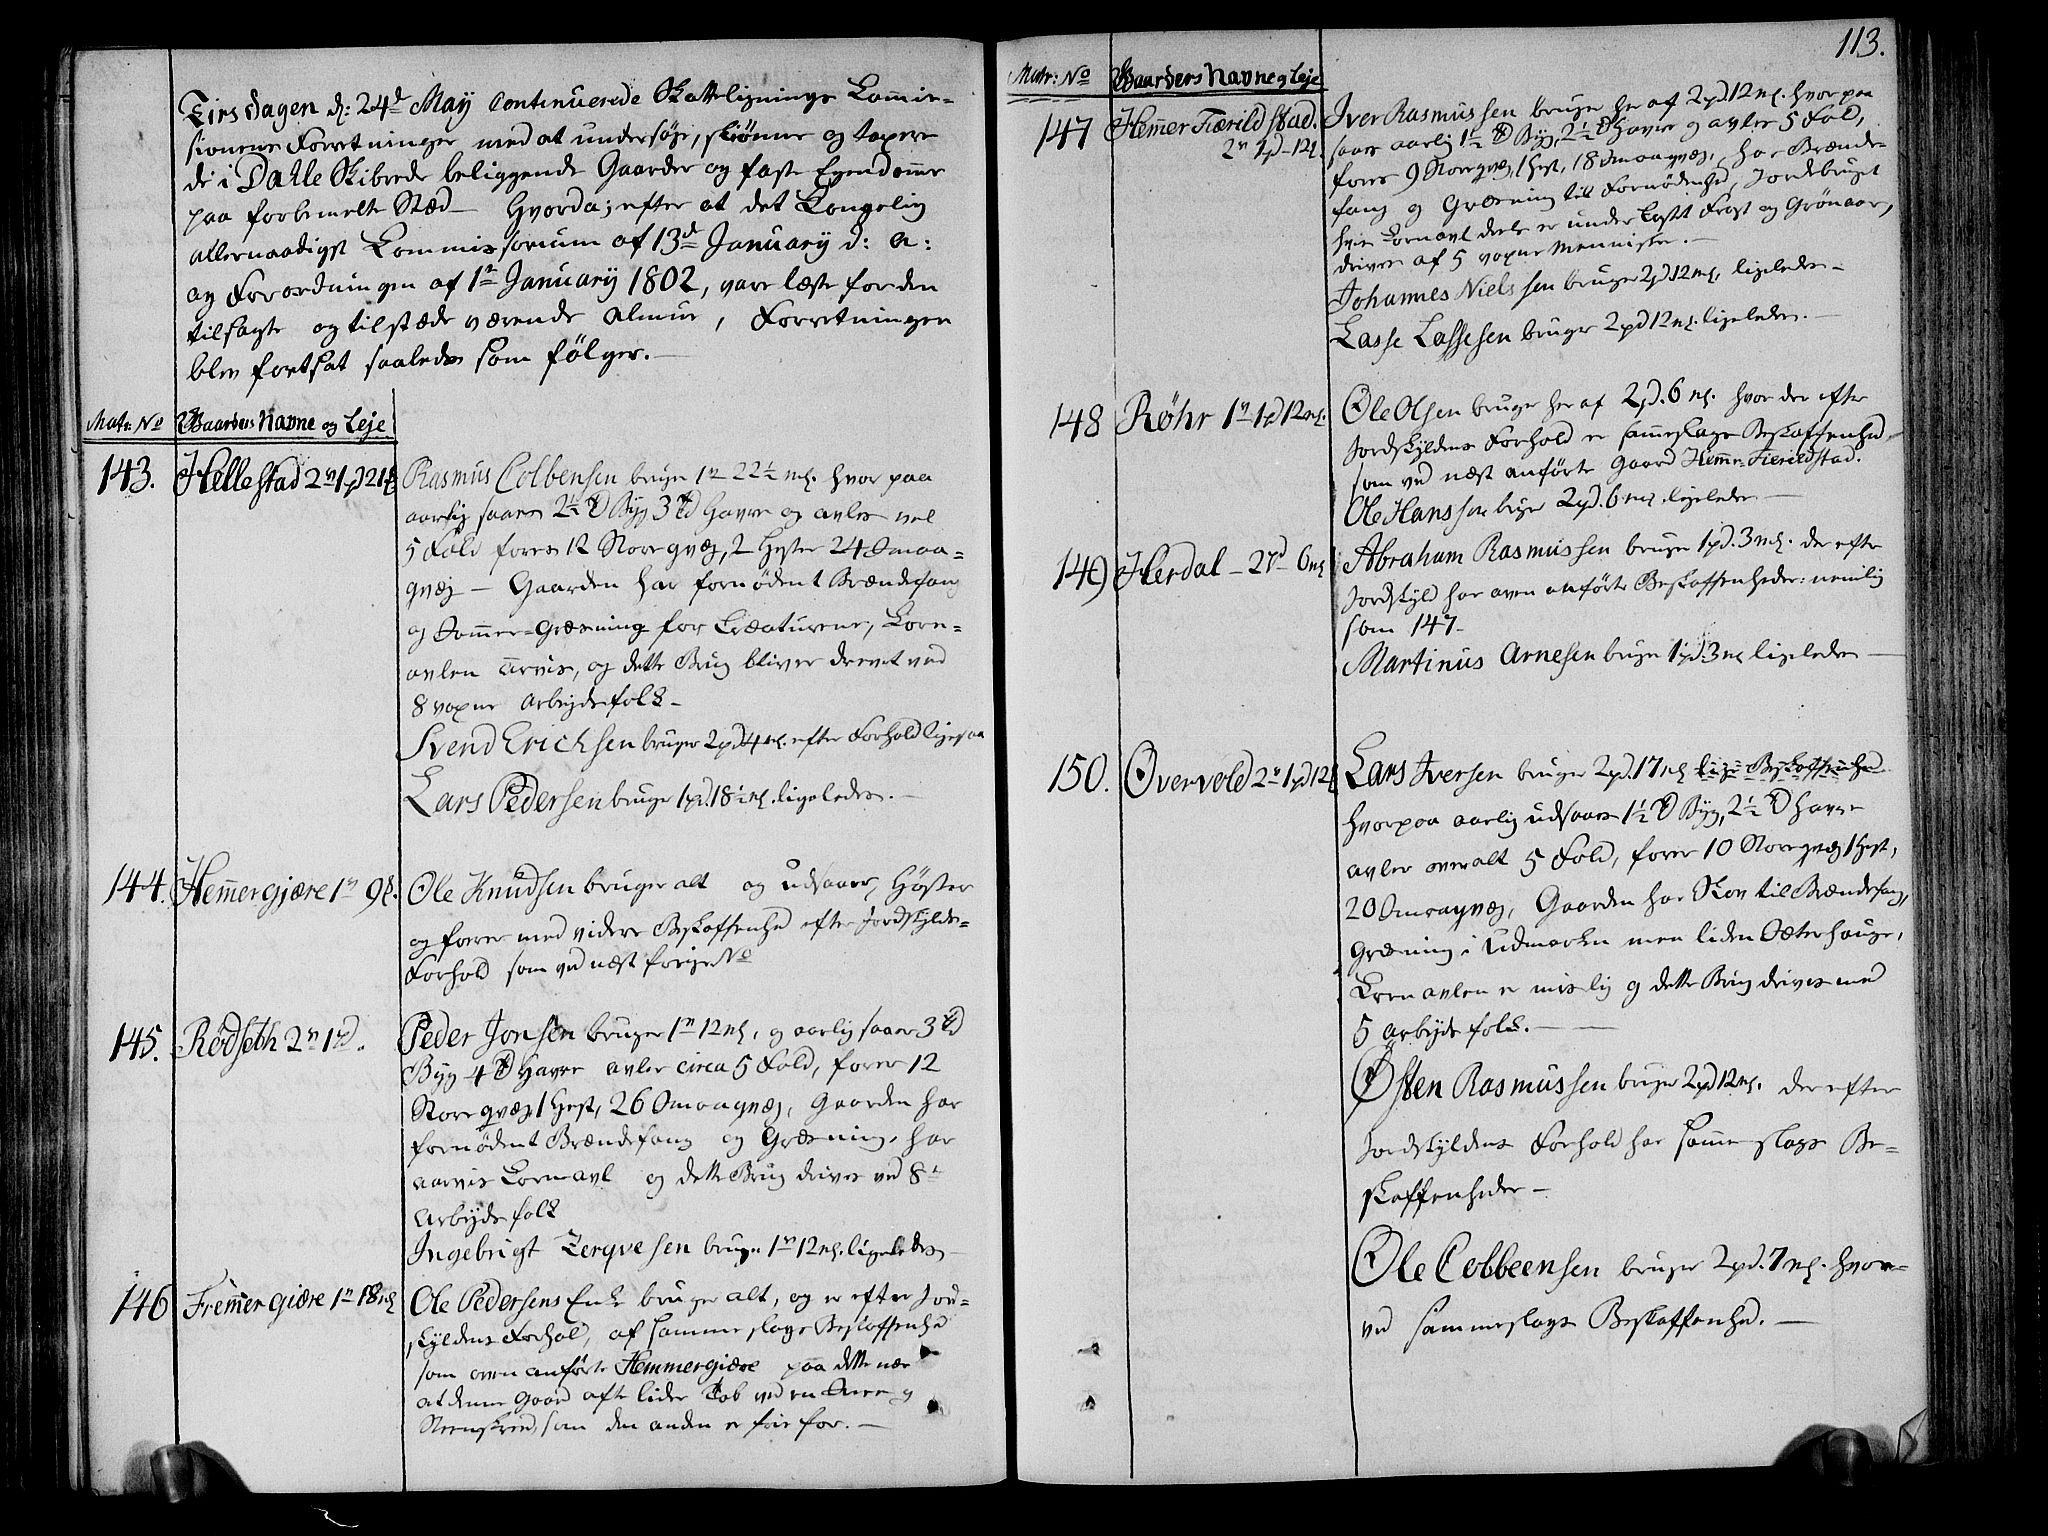 Tirsdagen d: 24d May Continuerede Skattelignings Commis-
sionens Forretninger med at undersøge, skiønne og taxere
de i Dahle Skibrede beliggende Gaarder og faste Ejendomme
paa forbemelte Stæd — Hvorda; efter at det Kongelig
allernaadigst Commissorium af 13de January d: a:
og Forordningen af 1te January 1802, vare læste for den
tilsagte og tilstæde værende Almue, Forretningen
blev fortsat saaledes som følger. —
Matr: No Gaardens Navne og Leje
143. Hellestad 2v 1pd 21
Rasmus Colbensen bruger 1v 22½ mk. hvorpaa
aarlig saaes 2½ Td Byg 3 Td Havre og avles vel
5 Fold fores 12 Storre qvæg, 2 Heste 24 Smaa-
qvæg — Gaarden har fornødent Brændefang
og Sommer-Græsning for Creaturene, Korn-
avlen aarvis, og dette Brug bliver drevet ved
8 voxne Arbejdsfolk —
Svend Erichsen bruger 2pd 4 mk. efter Forhold ligesaa
Lars Pedersen bruger 1pd. 18½ mk. ligeledes. —
144. Hemmergjære 1v 9
Ole Knudsen bruger alt og udsaaer, Høster
og forer med videre Beskaffenhed efter Jordskylds-
Forhold som ved næst forige No
145. Rødseth 2v 1pd.
Peder Jonsen bruger 1v 12 mk, og aarlig saaer 3 Td
Byg 4 Td Havre avler circa 5 Fold, forer 12
Storre qvæg 1 Hest, 26 Smaaqvæg, Gaarden har
fornødent Brændefang og Græsning, har
aarvis Kornavl og dette Brug drives ved 8te
Arbejdsfolk
Ingebrigt Tergvesen bruger 1v 12 mk. ligeledes —
146 Fremmergiære 1v 18 mk
Ole Pedersens Enke bruger alt, og er efter Jord-
skyldens Forhold, af samme slags Beskaffenhed
som oven anførte Hemmergiære paa dette nær
at denne Gaard ofte lider Tab ved en Snee og
Steenskred, som den anden er frie for. —
113.
Matr: No Gaardens Navne og Leje
147 Hemmer Fiærildstad.
2v 1pd - 12
Iver Rasmussen bruger her af 2pd 12 mk. hvorpaa
saaes aarlig 1½ Td Byg, 2½ Td Havre og avles 5 Fold,
fores 9 Storreqvæg, 1 Hest, 18 Smaaqvæg, har Brænde-
fang og Græsning til Fornødenhed, Jordebruget
hvis Kornavl deels er underkastt Frost og Grønaar,
drives af 5 voxne Mennisker. —
Johannes Nielssen bruger 2pd 12 mk. ligeledes —
Lasse Lassesen bruger 2pd 12 mk. ligeledes. —
148 Røhr 1v 1pd 12 mk.
Ole Olsen bruger her af 2pd. 6 mk. hvor der efter
Jordskyldens Forhold er samme slags Beskaffenhed
som ved næst anførte Gaard Hemmer-Fierildstad.
Ole Hanssen bruger 2pd. 6 mk. ligeledes —
149 Herdal — 2pd 6 mk
Abraham Rasmussen bruger 1pd. 3 mk. der efter
Jordskyld har oven anførte Beskaffenheder: nemlig
som 147 —
Martinus Arnesen bruger 1pd 3 mk ligeledes —
150. Overvold 2v 1pd 12
Lars Iversen bruger 2pd. 17 mk lige Beskaffenhed
hvorpaa aarlig udsaaes 1½ Td Byg, 2½ Td Havre
avler overalt 5 Fold, forer 10 Storreqvæg 1 Hest,
20 Smaaqvæg, Gaarden har Skov til Brændefang,
Græsning i Udmarken men liden Sæterhauge,
Kornavlen er mislig og dette Brug drives med
5 Arbejdsfolk. —
Østen Rasmussen bruger 2pd 12 mk. der efter
Jordskyldens Forhold har samme slags Be-
skaffenheder —
Ole Colbeensen bruger 2pd. 7 mk. hvor-
ved sammeslags Beskaffenhed. —